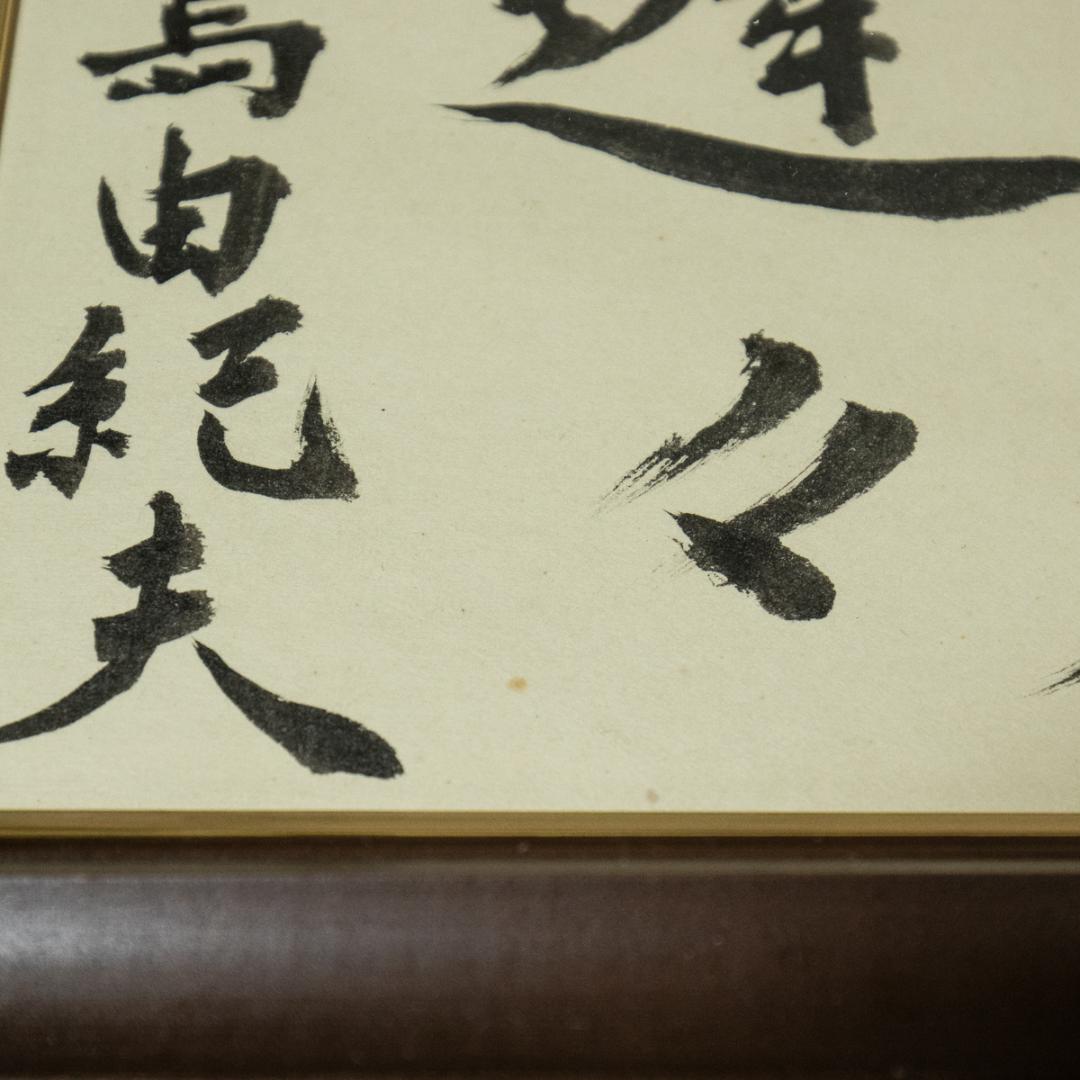 々
島由紀夫